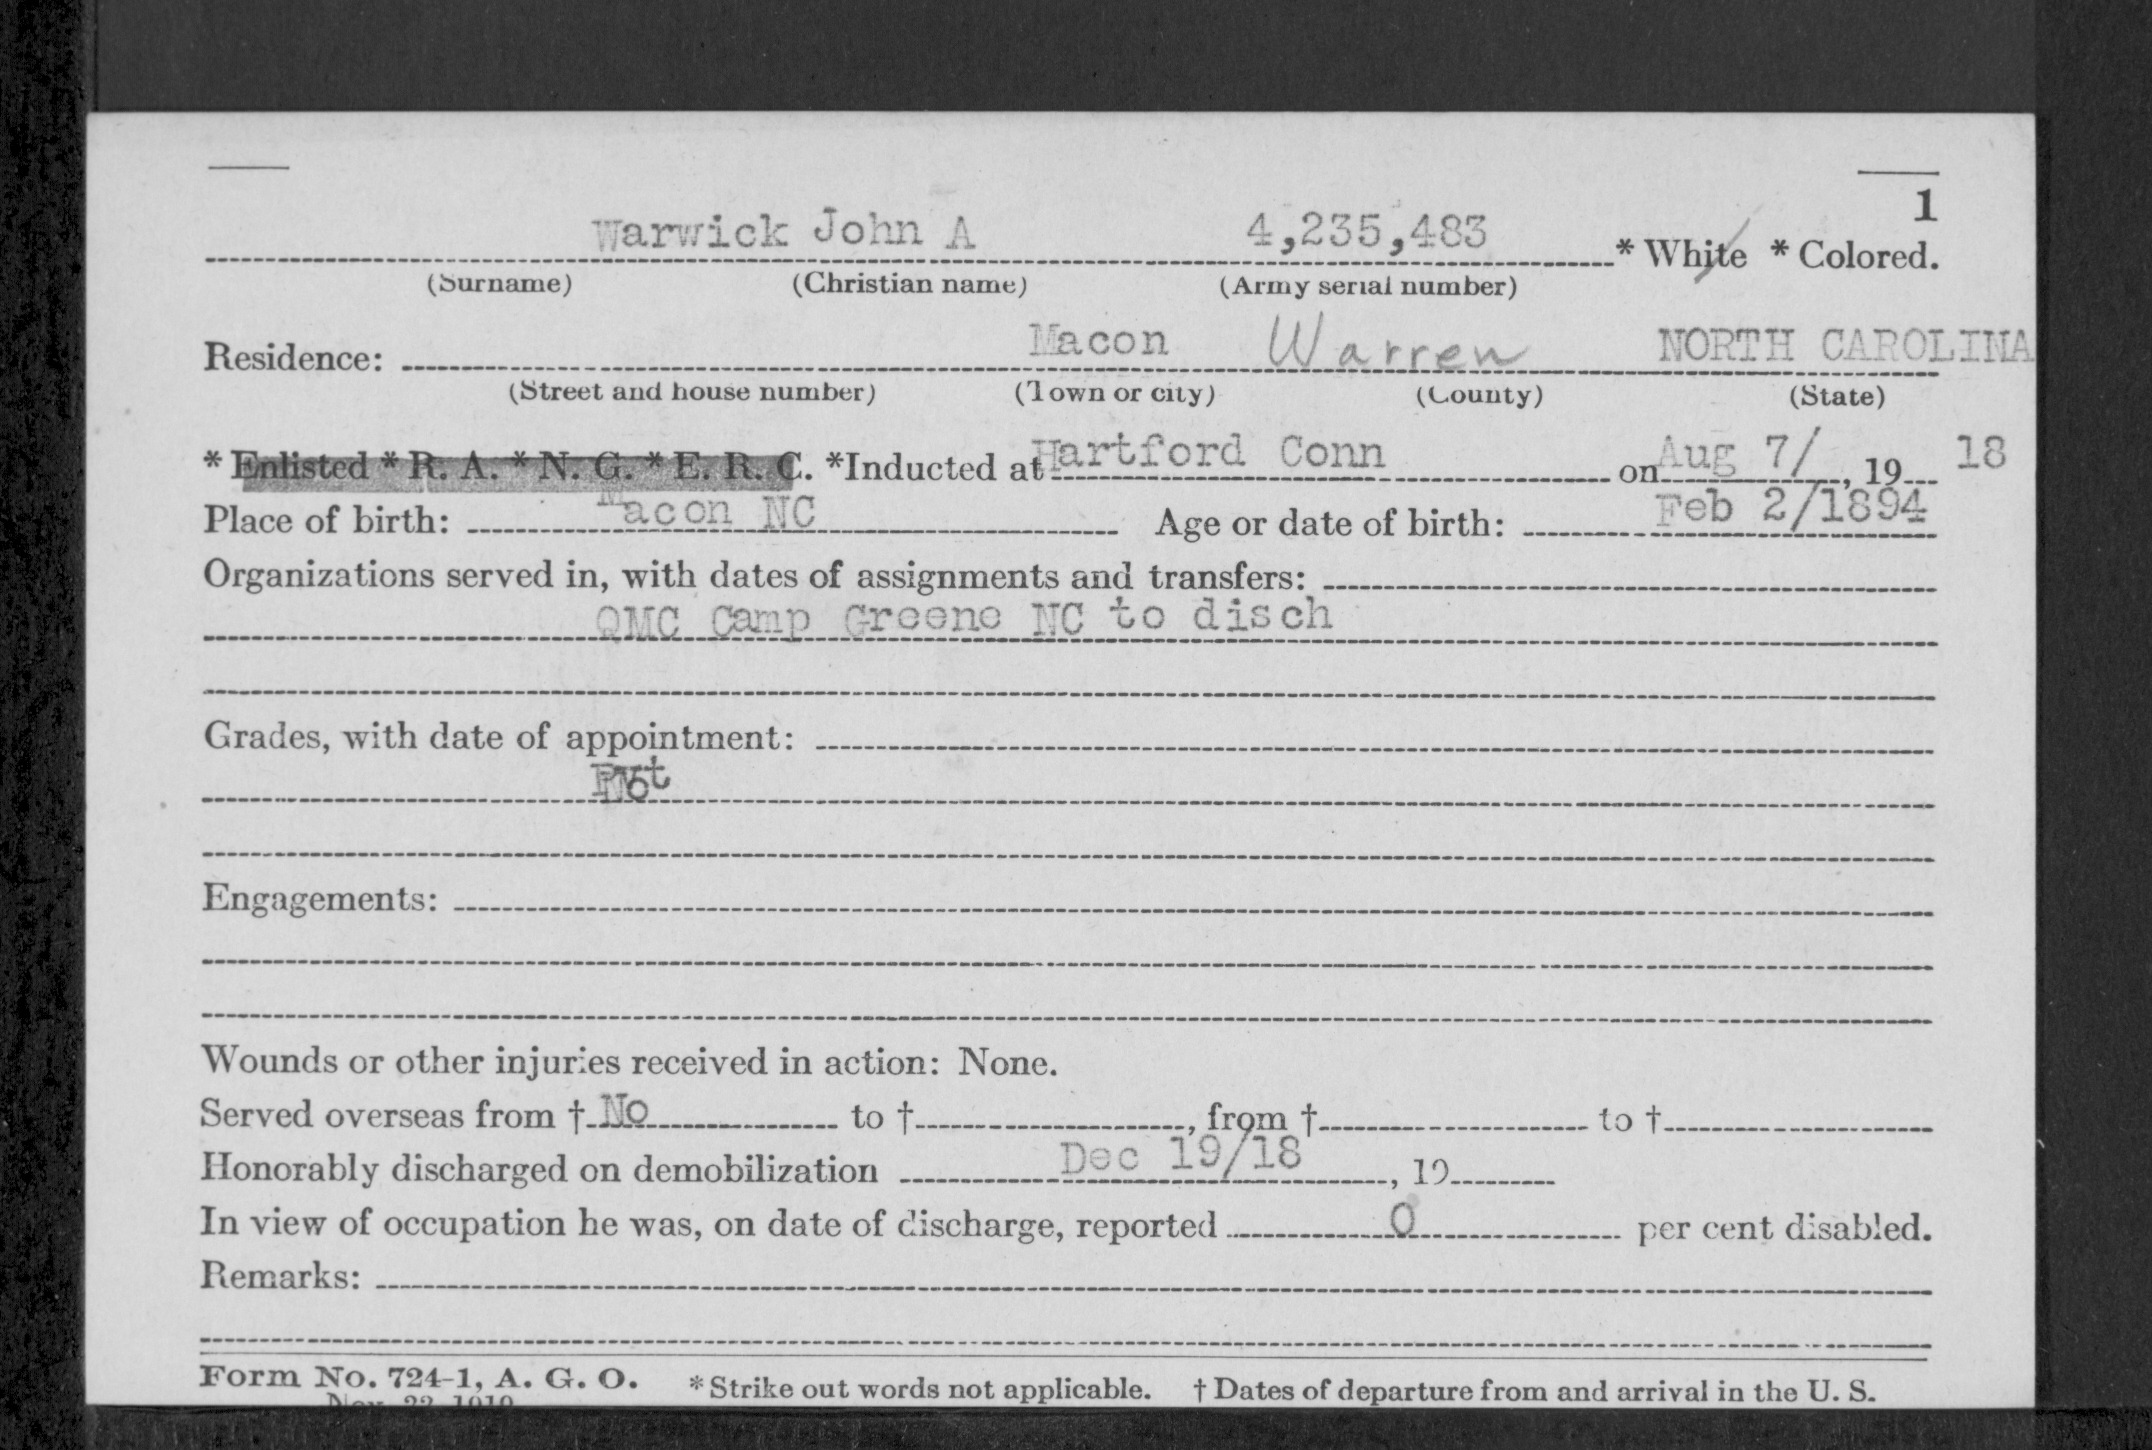 1
Warwick John A 4,235,483 * White * Colored.
(Surname) (Christian name) (Army serial number)
Residence: Macon Warren NORTH CAROLINA
(Street and house number) (Town or city) (County) (State)
* Enlisted * R. A. * N. G. * E. R. C. *Inducted at Hartford Conn on Aug 7/, 19 18
Place of birth: Macon NC Age or date of birth: Feb 2/1894
Organizations served in, with dates of assignments and transfers:
QMC Camp Greene NC to disch
Grades, with date of appointment:
Pvt
Engagements:
Wounds or other injuries received in action: None.
Served overseas from † No to †, from † to †
Honorably discharged on demobilization Dec 19/18, 19
In view of occupation he was, on date of discharge, reported 0 per cent disabled.
Remarks:
Form No. 724-1, A. G. O. * Strike out words not applicable. † Dates of departure from and arrival in the U. S.